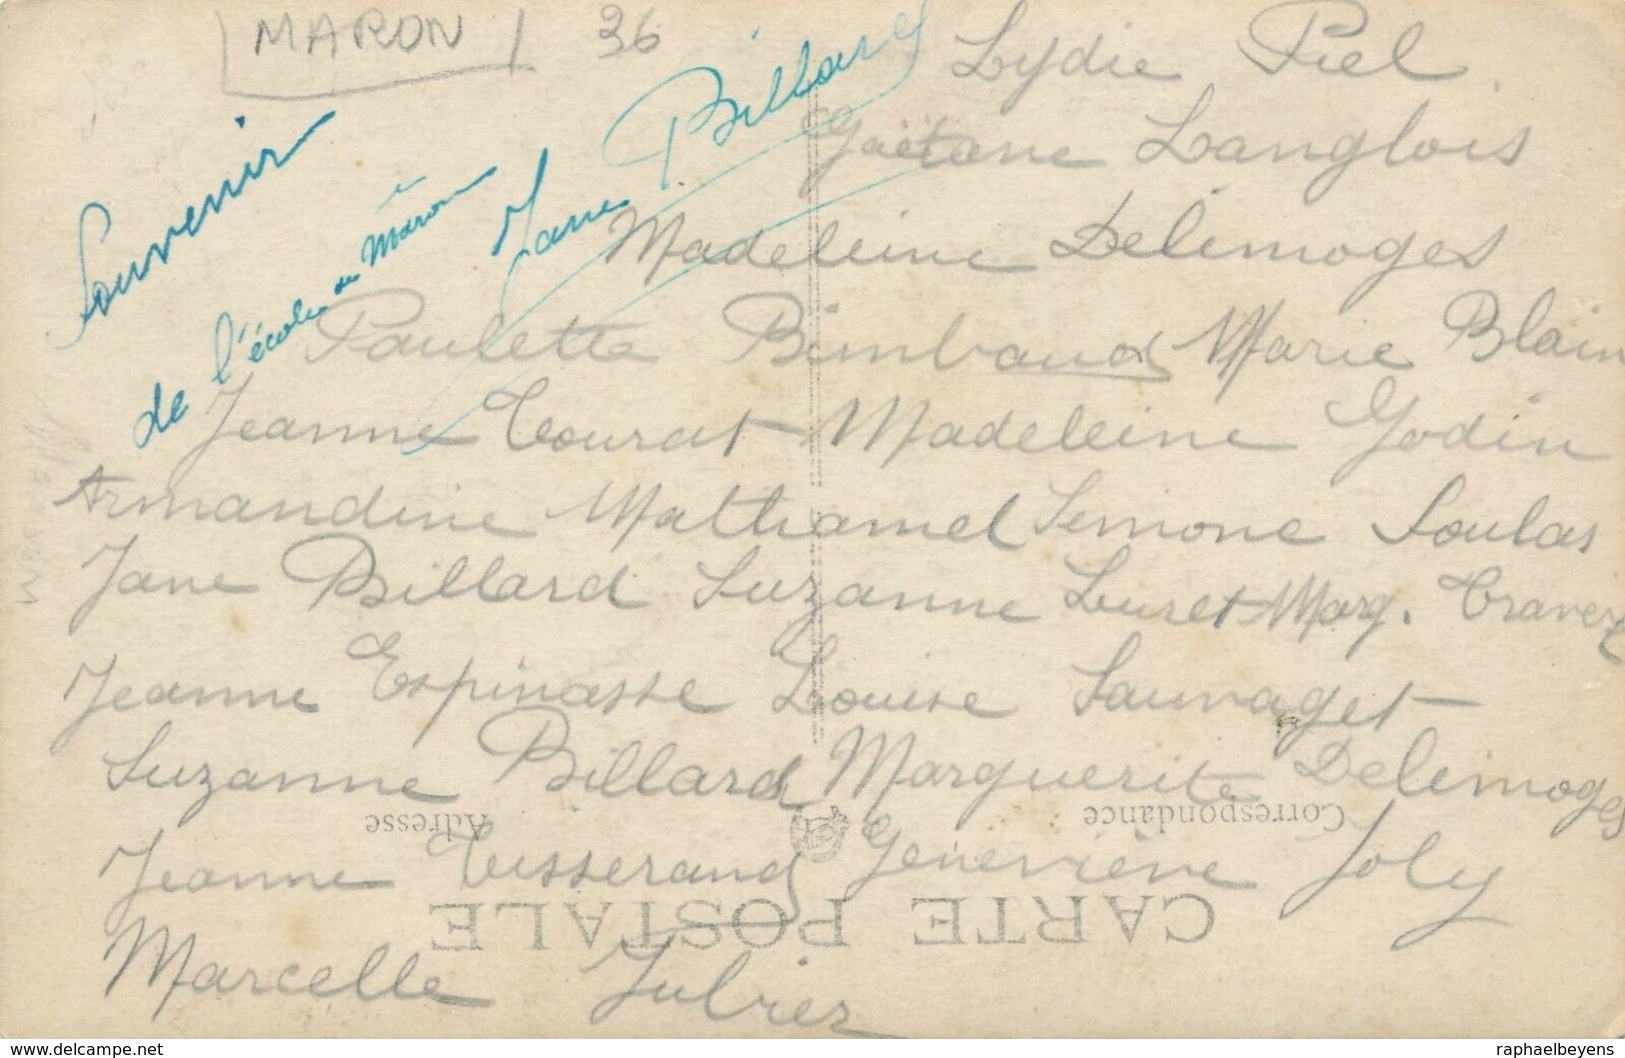 MARON 36
Souvenir
de l'école de Mâron
Jane Billard
Lydie Piel
Gaëtane Langlois
Madeleine Delimoges
Paulette Bimbaud Marie Blain
Jeanne Tourat Madeleine Godin
Armandine Mathamel Simone Soulas
Jane Billard Suzanne Luret Marg.
Jeanne Espinasse Louise Sauvaget
Suzanne Billard Marguerite Delimoges
Adresse Correspondance
Jeanne Tisserand Geneviève Joly
CARTE POSTALE
Marcelle
www.delcampe.net raphaelbeyens